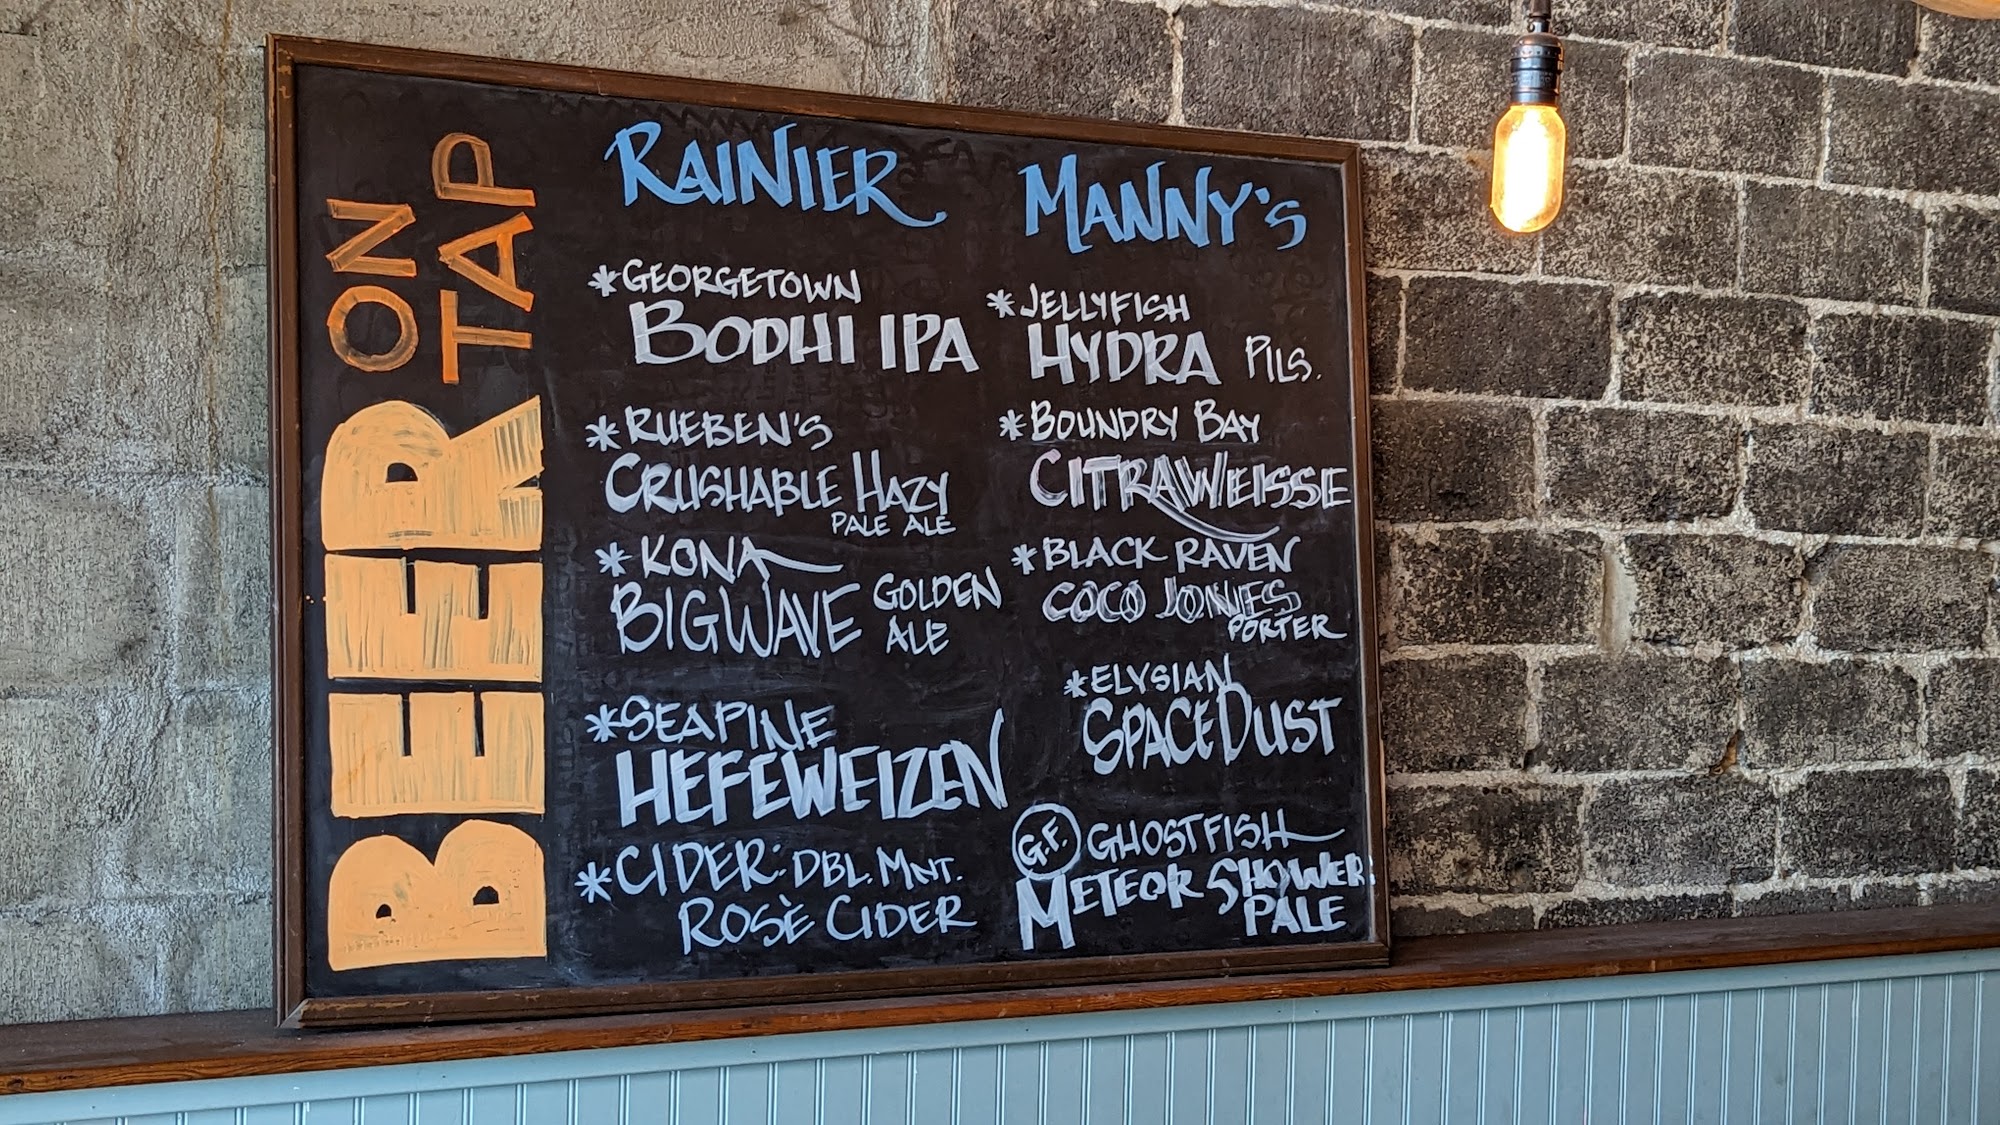 BEER ON TAP
RAINIER
MANNY'S
*GEORGETOWN
BODHI IPA
*RUEBEN'S
CRUSHABLE HAZY
PALE ALE
*KONA
BIG WAVE GOLDEN
ALE
*SEAPINE
HEFEWEIZEN
*CIDER: DBL. MNT.
ROSÈ CIDER
*JELLYFISH
HYDRA PILS.
*BOUNDRY BAY
CITRAWEISSE
*BLACK RAVEN
COCO JONES
PORTER
*ELYSIAN
SPACE DUST
G.F. GHOSTFISH
METEOR SHOWER
PALE